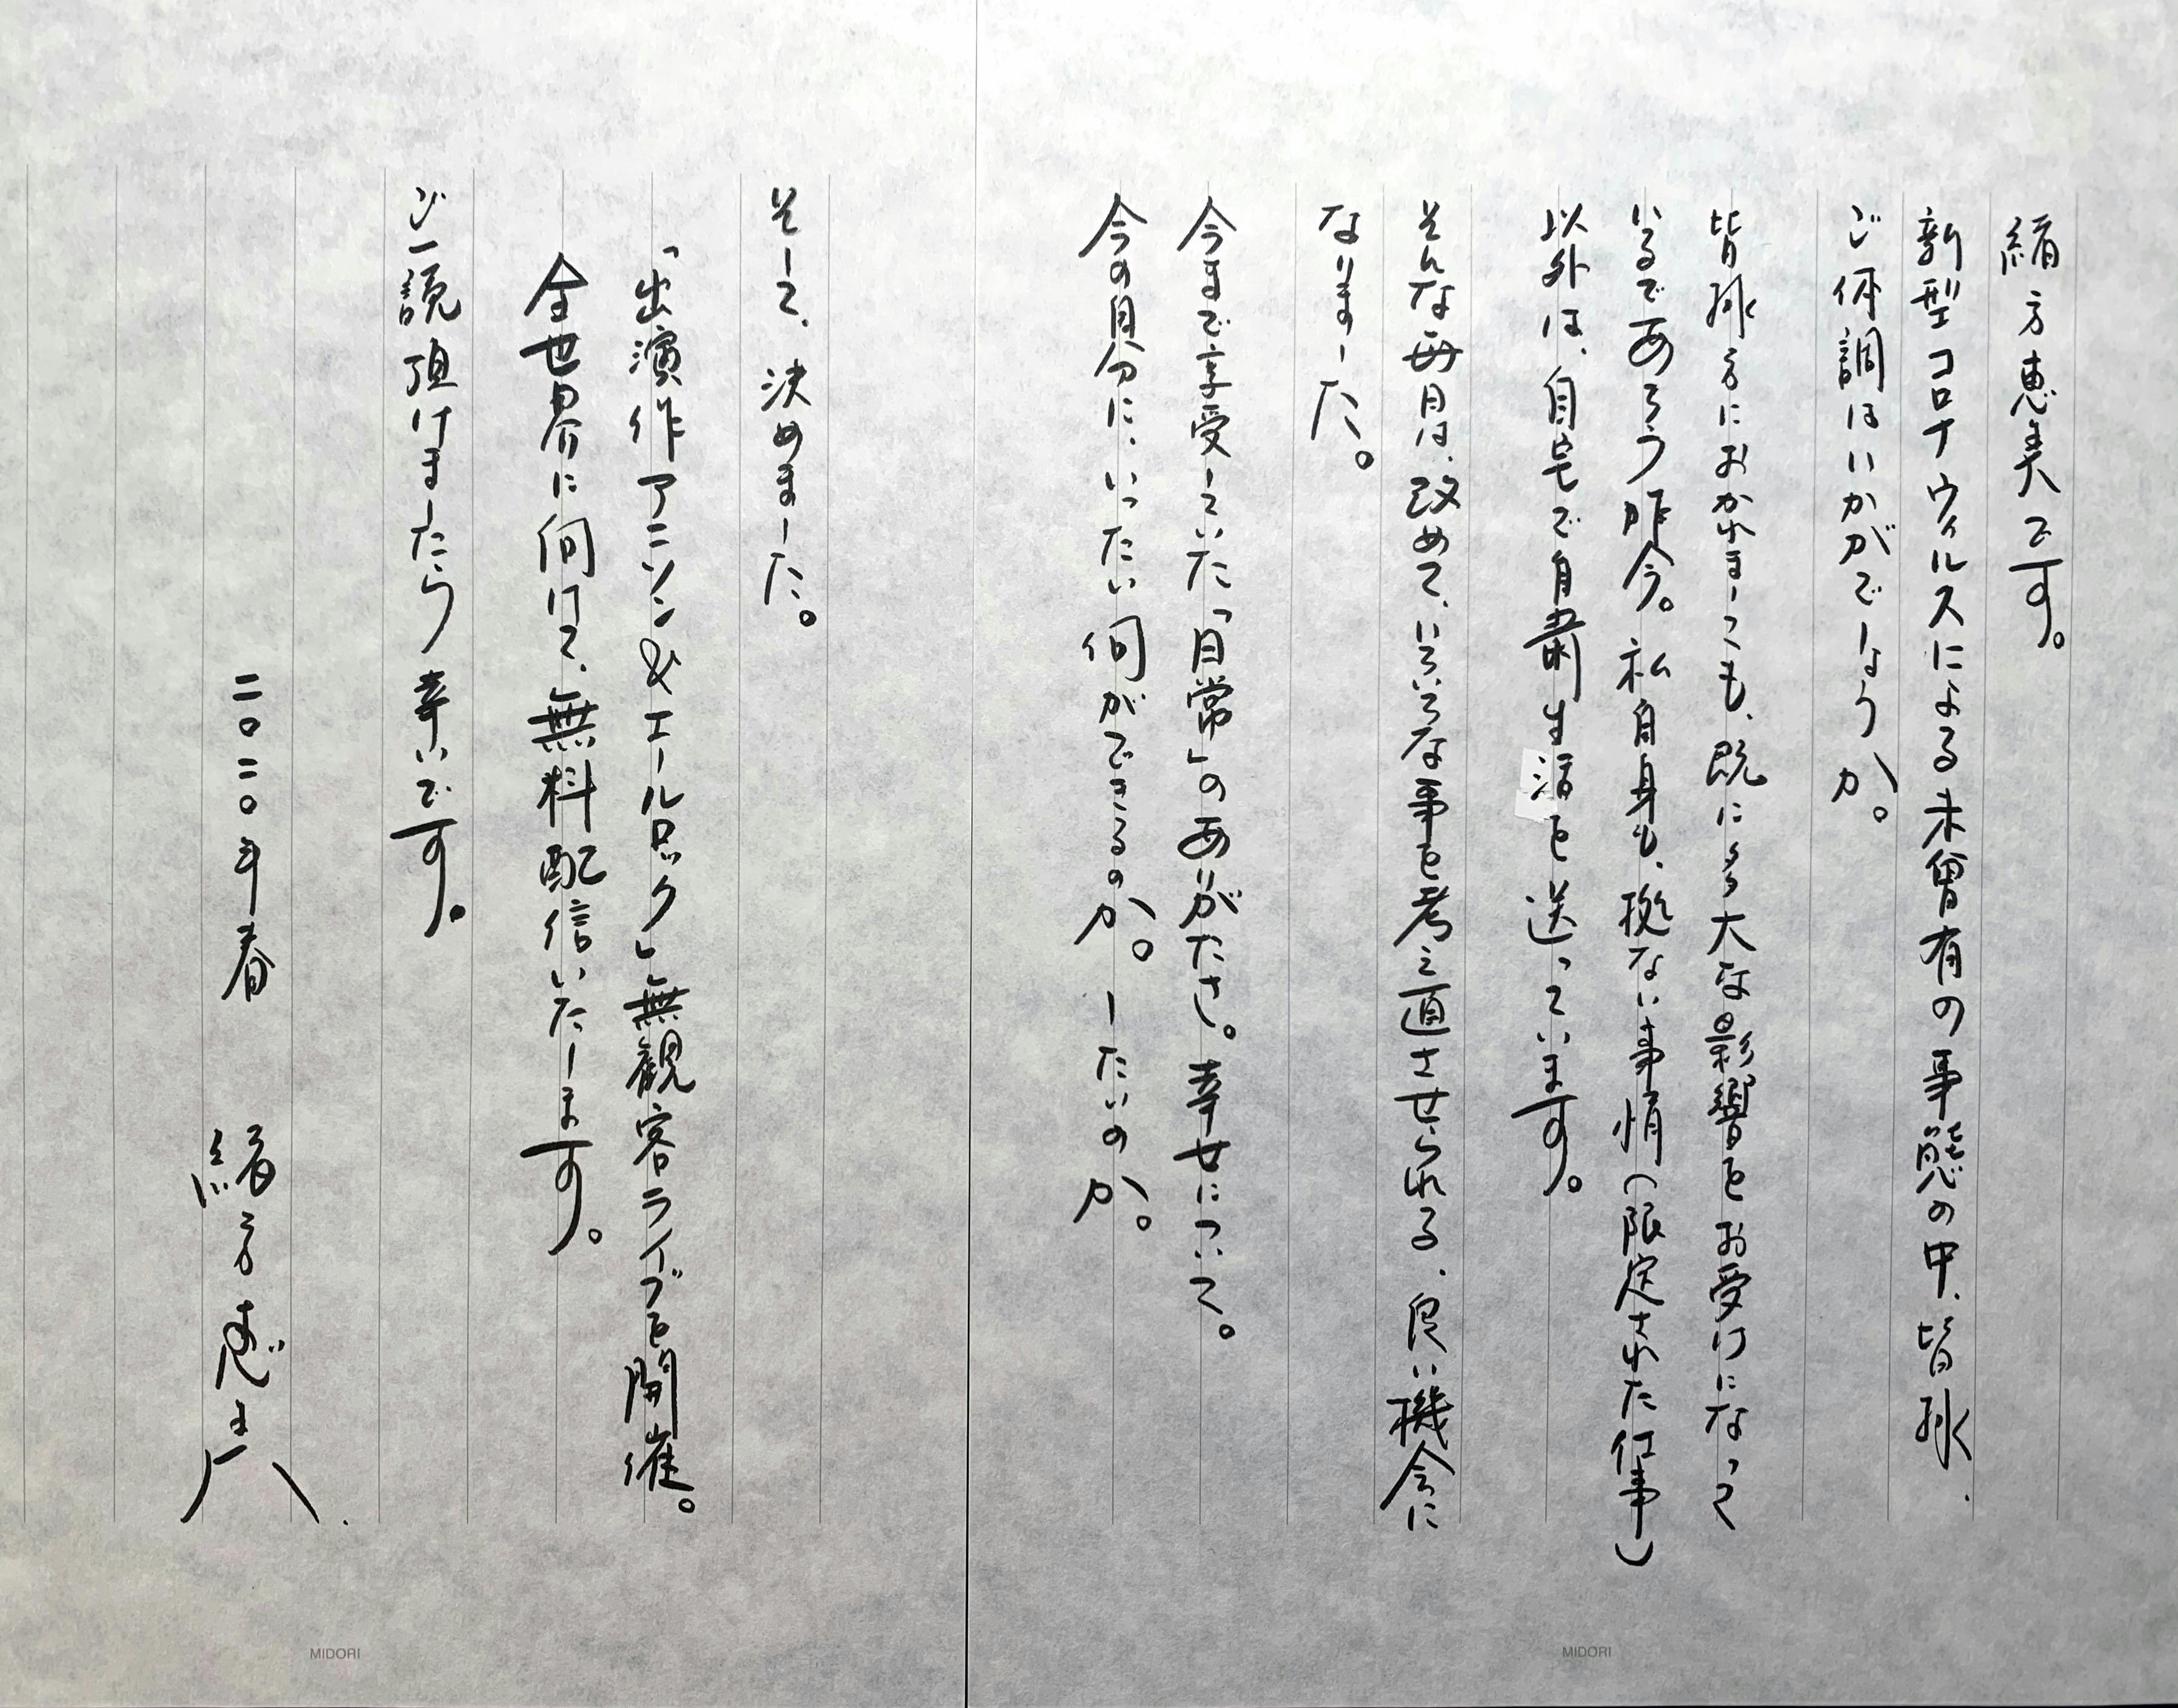 緒方恵美です。
新型コロナウィルスによる未曾有の事態の中、皆様、
ご体調はいかがでしょうか。
皆様方におかれましても、既に多大な影響をお受けになって
いるであろう昨今。私自身も、拠ない事情（限定された仕事）
以外は、自宅で自粛生活を送っています。
そんな毎日は、改めて、いろいろな事を考え直させられる、良い機会に
なりました。
今まで享受していた「日常」のありがたさ。幸せについて。
今の自分に、いったい何ができるのか。したいのか。
そして、決めました。
「出演作アニソン&エールロック」無観客ライブを開催。
全世界に向けて、無料配信いたします。
ご一読頂けましたら幸いです。
二〇二〇年春 緒方恵美
MIDORI
MIDORI